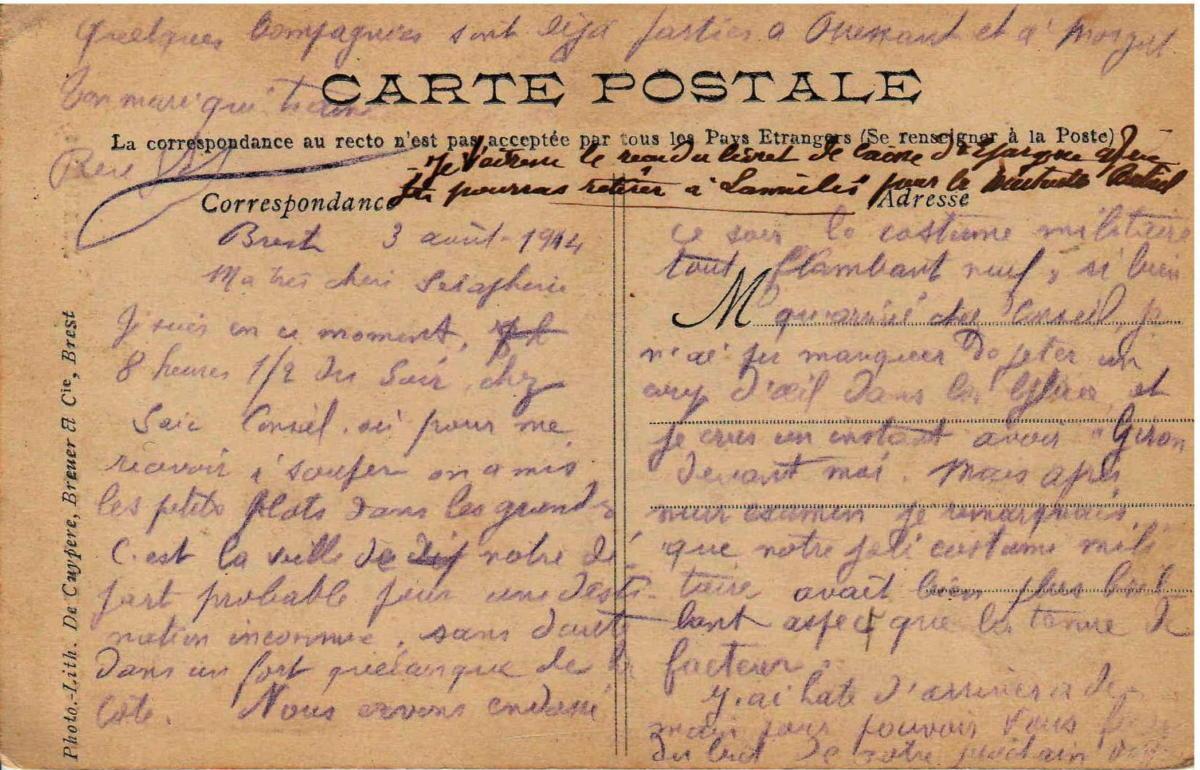 Quelques Compagnies sont déja parties à Ouessant et à Morgat
Ton mari qui t'aime
CARTE POSTALE
La correspondance au recto n'est pas acceptée par tous les Pays Etrangers (Se renseigner à la Poste)
Je t'adresse le reçu du livret de Caisse d'Epargne que
tu pourras retirer à Lannilis pour le
Correspondance
Adresse
Brest 3 août 1914
Ma très cheri Séraphine
Je suis en ce moment,
8 heures 1/2 du Soir, chez
Saic Conseil, où pour me
recevoir à souper on a mis
les petits plats dans les grands
C'est la veille de notre dé
part probable pour une desti-
nation inconnue, sans doute
dans un fort quelconque de la
Côte. Nous avons endossé
ce soir le costume militaire
tout flambant neuf, si bien
M
qu'arrivé chez Conseil, je
n'ai pu manquer de jeter un
coup d'œil dans la glace, et
je crus un instant avoir Giron
devant moi. Mais après
mur examen je remarquais
que notre joli costume mili
taire avait bien plus bril
lant aspect que la tenue de
facteur.
J'ai hate d'arriver à de-
main pour pouvoir vous
du but de notre prochain
Photo.-Lith. De Cuypere, Breuer & Cie, Brest